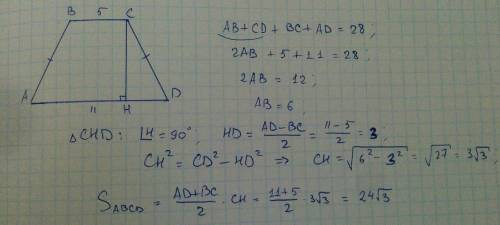 B 5 C
A H D
11
AB+CD + BC + AD = 28;
2AB + 5 + 11 = 28;
2AB = 12;
AB = 6;
△CHD: ∟H = 90°; HD = (AD-BC)/2 = (11-5)/2 = 3;
CH² = CD² - HD² ⇒ CH = √(6² - 3²) = √27 = 3√3;
S_ABCD = (AD+BC)/2 · CH = (11+5)/2 · 3√3 = 24√3